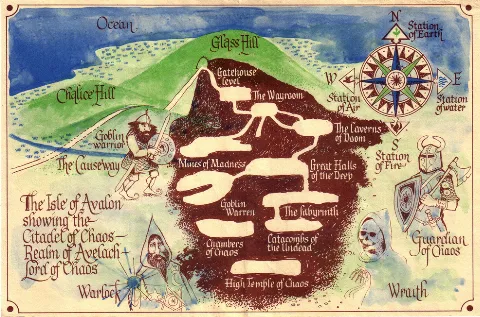 Ocean
Glass Hill
N
Station
of Earth
Chalice Hill
Gatehouse
level
The Wayroom
W
E
Station
of Air
Station
of water
The Caverns
of Doom
Goblin
warrior
S
Station
of Fire
The Causeway
Mines of Madness
Great Halls
of the Deep
The Isle of Avalon
showing the
Citadel of Chaos—
Realm of Avelach—
Lord of Chaos
Goblin
Warren
The Labyrinth
Chambers
of Chaos
Catacombs of
the Undead
Guardian
of Chaos
Warlock
High Temple of Chaos
Wraith